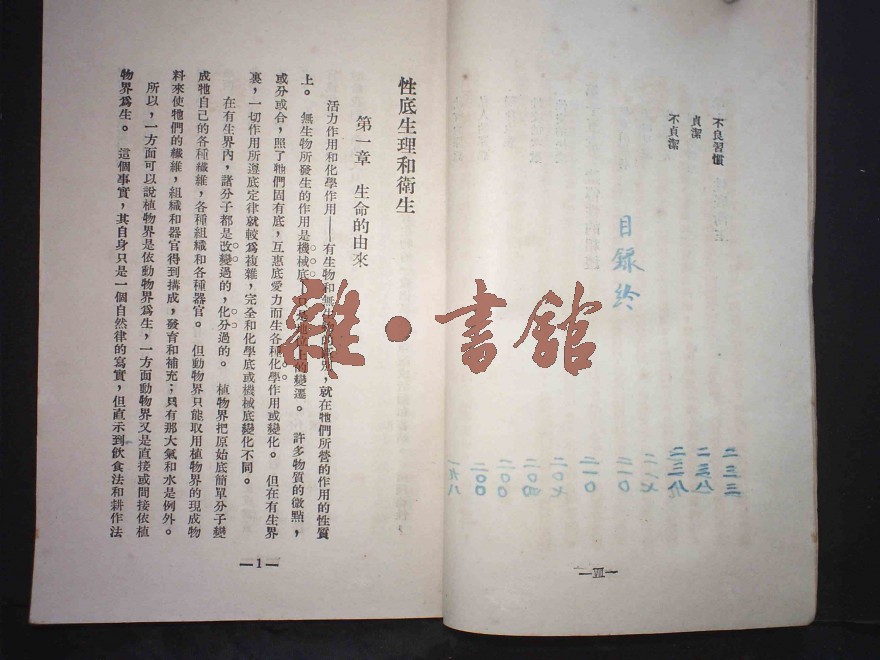 不良習慣
貞潔
不貞潔
目錄終
二三三
二三八
二三九
二一七
二一〇
二一〇
二〇七
二〇八
二〇〇
二〇〇
一九八
—VII—
性底生理和衛生
第一章 生命的由來
活力作用和化學作用——有生物和無生物的區別，就在牠們所營的作用的性質
上。 無生物所發生的作用是機械底，只是地位上的變遷。 許多物質的微點，
或分或合，照了牠們固有底，互惠底愛力而生各種化學作用或變化。 但在有生界
裏，一切作用所遵底定律就較爲複雜，完全和化學底或機械底變化不同。
在有生界內，諸分子都是改變過的，化分過的。 植物界把原始底簡單分子變
成牠自己的各種纖維，各種組織和各種器官。 但動物界只能取用植物界的現成物
料來使牠們的纖維，組織和器官得到構成，發育和補充；只有那大氣和水是例外。
所以，一方面可以說植物界是依動物界爲生，一方面動物界又是直接或間接依植
物界爲生。 這個事實，其自身只是一個自然律的寫實，但直示到飲食法和耕作法
—1—
雜·書館